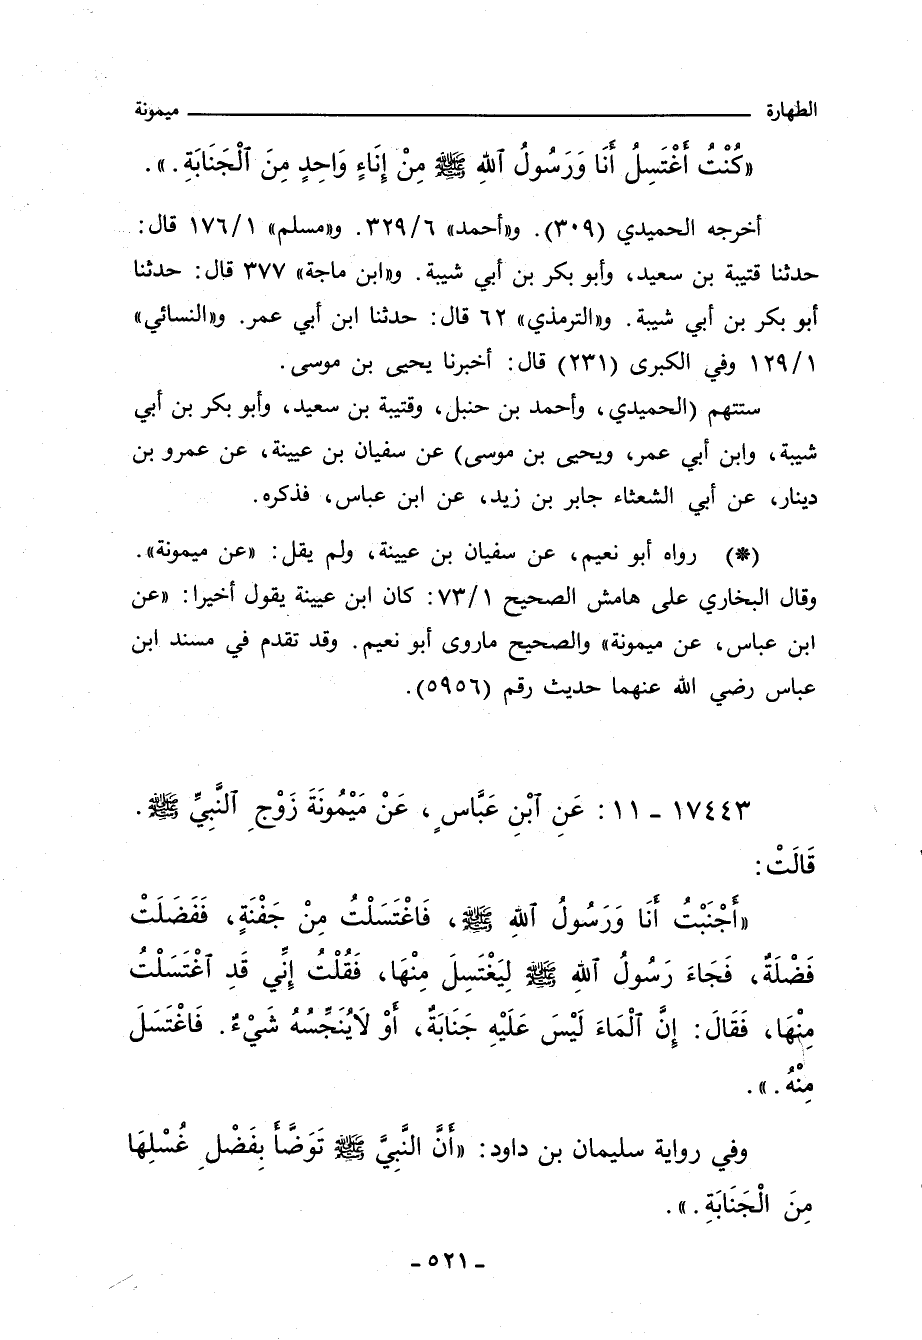 الطهارة ـــــــــــــــــــــــــــــــــــــــــــــــ ميمونة
«كُنْتُ أَغْتَسِلُ أَنَا وَرَسُولُ ٱللهِ ﷺ مِنْ إِنَاءٍ وَاحِدٍ مِنَ ٱلْجَنَابَةِ.».
أخرجه الحميدي (٣٠٩). و«أحمد» ٣٢٩/٦. و«مسلم» ١٧٦/١ قال:
حدثنا قتيبة بن سعيد، وأبو بكر بن أبي شيبة. و«ابن ماجة» ٣٧٧ قال: حدثنا
أبو بكر بن أبي شيبة. و«الترمذي» ٦٢ قال: حدثنا ابن أبي عمر. و«النسائي»
١٢٩/١ وفي الكبرى (٢٣١) قال: أخبرنا يحيى بن موسى.
ستتهم (الحميدي، وأحمد بن حنبل، وقتيبة بن سعيد، وأبو بكر بن أبي
شيبة، وابن أبي عمر، ويحيى بن موسى) عن سفيان بن عيينة، عن عمرو بن
دينار، عن أبي الشعثاء جابر بن زيد، عن ابن عباس، فذكره.
(*) رواه أبو نعيم، عن سفيان بن عيينة، ولم يقل: «عن ميمونة».
وقال البخاري على هامش الصحيح ٧٣/١: كان ابن عيينة يقول أخيرا: «عن
ابن عباس، عن ميمونة» والصحيح ماروى أبو نعيم. وقد تقدم في مسند ابن
عباس رضي الله عنهما حديث رقم (٥٩٥٦).
١٧٤٤٣ ـ ١١: عَنِ ٱبْنِ عَبَّاسٍ، عَنْ مَيْمُونَةَ زَوْجِ ٱلنَّبِيِّ ﷺ.
قَالَتْ:
«أَجْنَبْتُ أَنَا وَرَسُولُ ٱللهِ ﷺ، فَاغْتَسَلْتُ مِنْ جَفْنَةٍ، فَفَضَلَتْ
فَضْلَةٌ، فَجَاءَ رَسُولُ ٱللهِ ﷺ لِيَغْتَسِلَ مِنْهَا، فَقُلْتُ إِنِّي قَدِ ٱغْتَسَلْتُ
مِنْهَا، فَقَالَ: إِنَّ ٱلْمَاءَ لَيْسَ عَلَيْهِ جَنَابَةٌ، أَوْ لَايُنَجِّسُهُ شَيْءٌ. فَاغْتَسَلَ
مِنْهُ.».
وفي رواية سليمان بن داود: «أَنَّ النَّبِيَّ ﷺ تَوَضَّأَ بِفَضْلِ غُسْلِهَا
مِنَ الْجَنَابَةِ.».
ـ ٥٢١ ـ